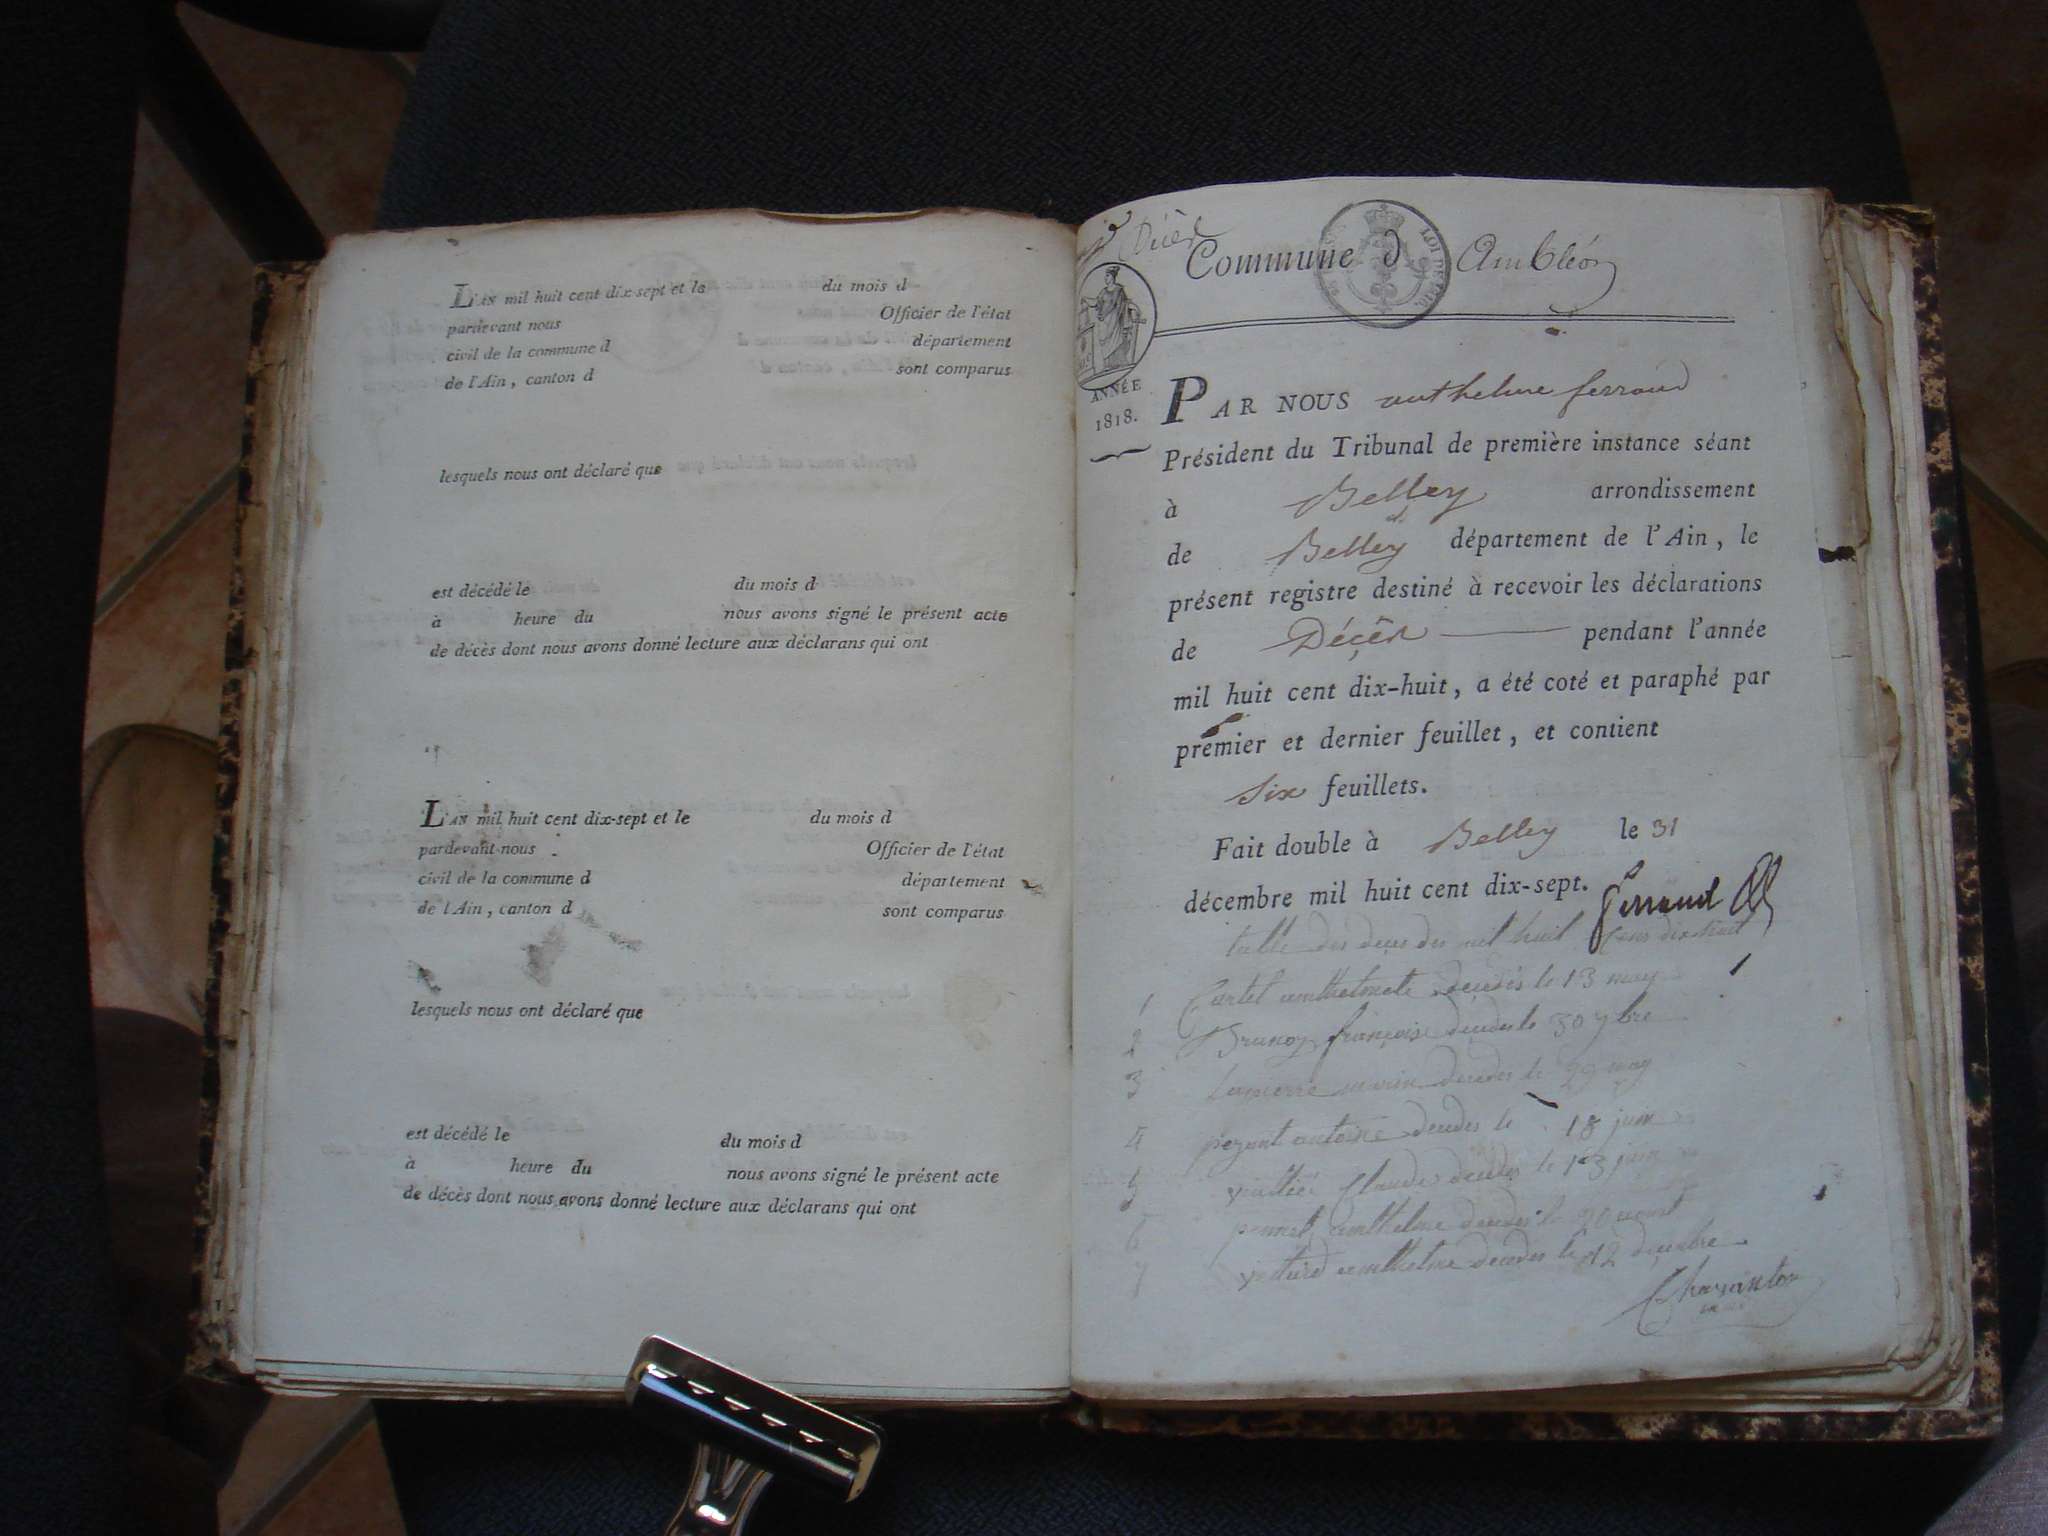 L'AN mil huit cent dix-sept et le du mois d
pardevant nous Officier de l'état
civil de la commune d département
de l'Ain, canton d sont comparus
lesquels nous ont déclaré que
est décédé le du mois d
à heure du nous avons signé le présent acte
de décès dont nous avons donné lecture aux déclarans qui ont
L'AN mil huit cent dix-sept et le du mois d
pardevant nous Officier de l'état
civil de la commune d département
de l'Ain, canton d sont comparus
lesquels nous ont déclaré que
est décédé le du mois d
à heure du nous avons signé le présent acte
de décès dont nous avons donné lecture aux déclarans qui ont
Décès
Commune d Ambléon
ANNÉE
1818.
PAR NOUS anthelme ferroud
Président du Tribunal de première instance séant
à Belley arrondissement
de Belley département de l'Ain, le
présent registre destiné à recevoir les déclarations
de Décès pendant l'année
mil huit cent dix-huit, a été coté et paraphé par
premier et dernier feuillet, et contient
six feuillets.
Fait double à Belley le 31
décembre mil huit cent dix-sept.
table des deces des mil huit cens dix huit
1 anthelmete decedés le 13 may
2 françoise decedes le 30
3 decedes le 29 may
4 antoine decedes le 18 juin
5 Claude decedes le 13 juin
6 anthelme decedes le
7 anthelme decedes le 12 decembre